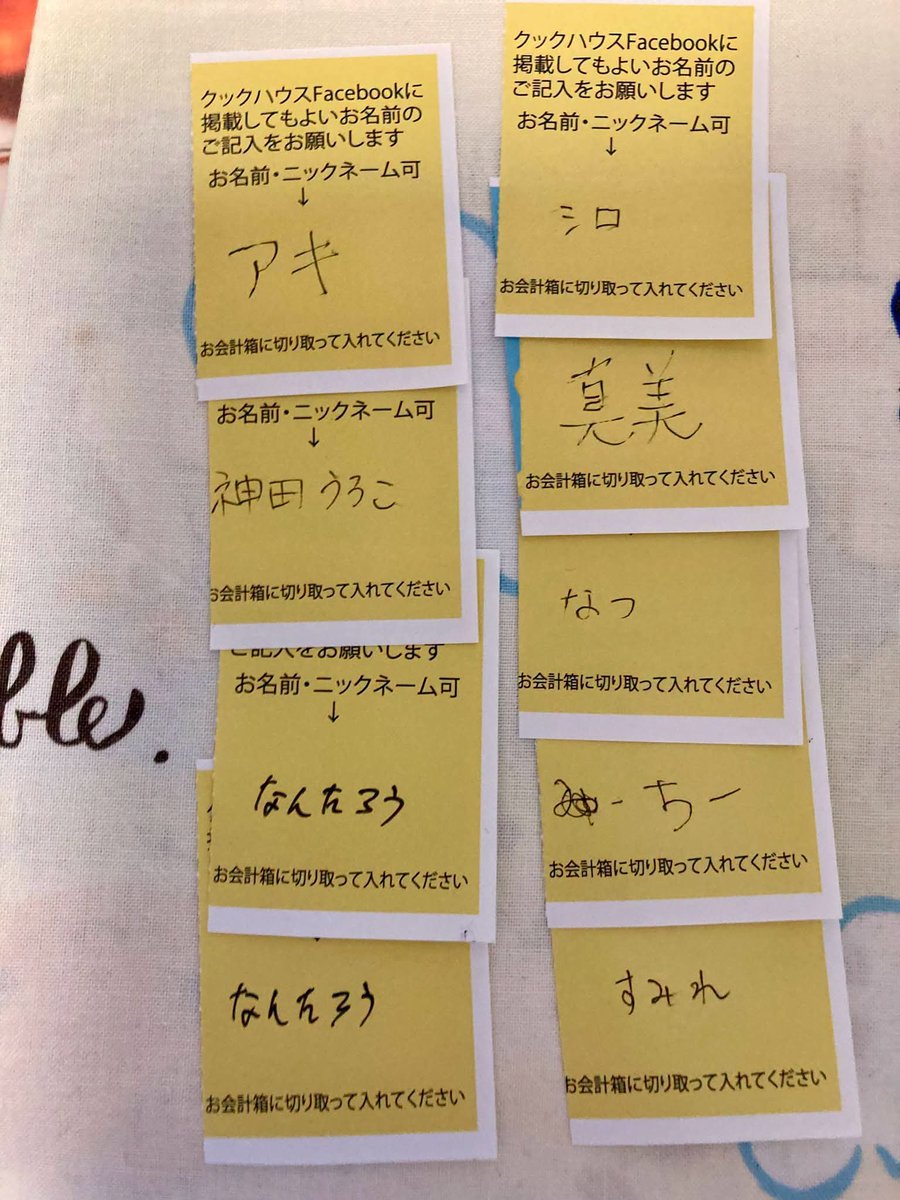 クックハウスFacebookに
掲載してもよいお名前の
ご記入をお願いします
お名前・ニックネーム可
↓
アキ
お会計箱に切り取って入れてください
お名前・ニックネーム可
↓
神田うろこ
お会計箱に切り取って入れてください
ご記入をお願いします
お名前・ニックネーム可
↓
なんたろう
お会計箱に切り取って入れてください
なんたろう
お会計箱に切り取って入れてください
クックハウスFacebookに
掲載してもよいお名前の
ご記入をお願いします
お名前・ニックネーム可
↓
シロ
お会計箱に切り取って入れてください
真美
お会計箱に切り取って入れてください
なつ
お会計箱に切り取って入れてください
ーちー
お会計箱に切り取って入れてください
すみれ
お会計箱に切り取って入れてください
ble.